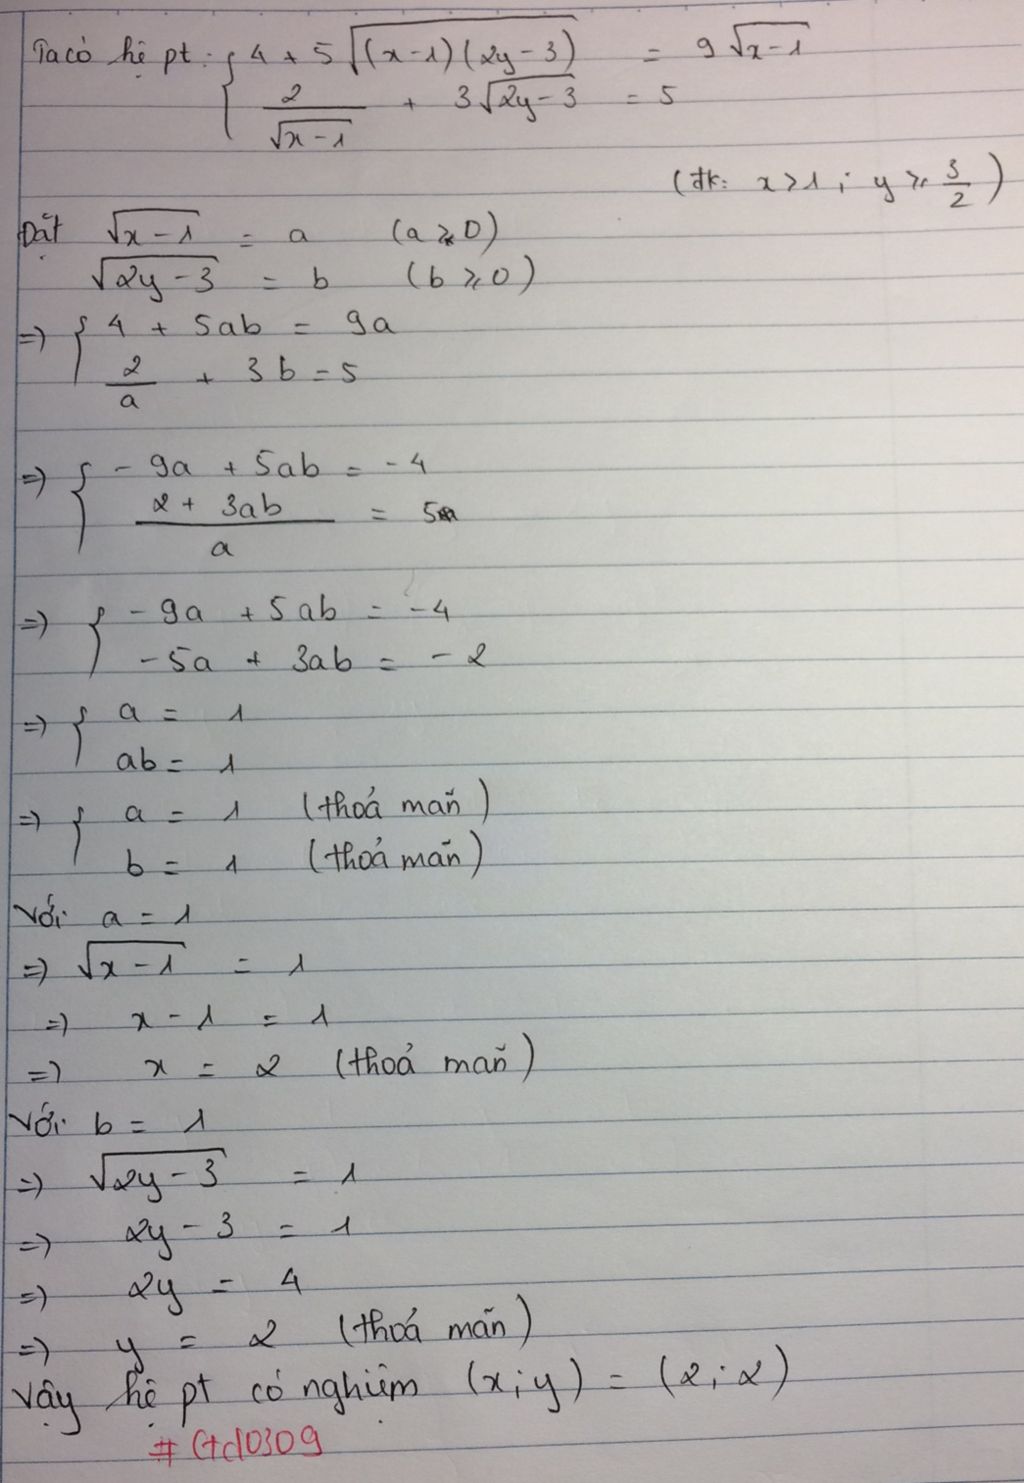 Ta có hệ pt: { 4 + 5√((x-1)(2y-3)) = 9√(x-1)
2/√(x-1) + 3√(2y-3) = 5
(đk: x>1; y ≥ 3/2)
Đặt √(x-1) = a (a ≥ 0)
√(2y-3) = b (b ≥ 0)
=> { 4 + 5ab = 9a
2/a + 3b = 5
=> { - 9a + 5ab = -4
(2 + 3ab)/a = 5
=> { - 9a + 5ab = -4
-5a + 3ab = -2
=> { a = 1
ab = 1
=> { a = 1 (thoả mãn)
b = 1 (thoả mãn)
Với a = 1
=> √(x-1) = 1
=> x - 1 = 1
=> x = 2 (thoả mãn)
Với b = 1
=> √(2y-3) = 1
=> 2y - 3 = 1
=> 2y = 4
=> y = 2 (thoả mãn)
Vậy hệ pt có nghiệm (x;y) = (2;2)